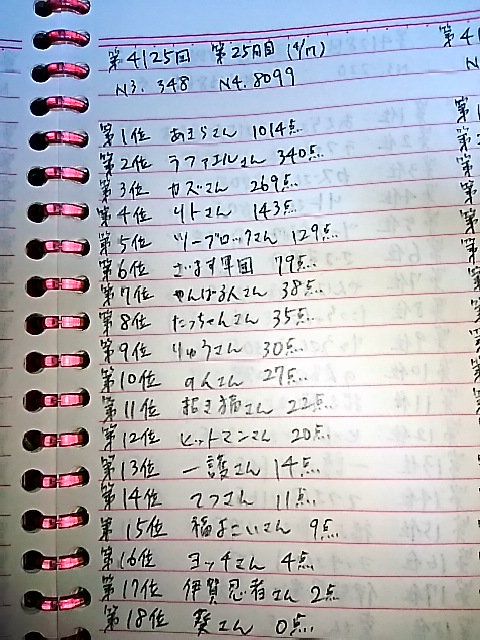 第4125回 第25月目 (4/17)
N3. 348 N4. 8099
第1位 あきらさん 1014点..
第2位 ラファエルさん 340点..
第3位 カズさん 269点..
第4位 リトさん 143点..
第5位 ツーブロックさん 129点..
第6位 ざいます軍団 79点..
第7位 やんばる人さん 38点..
第8位 たっちゃんさん 35点..
第9位 りゅうさん 30点..
第10位 のんさん 27点..
第11位 招き猫さん 22点..
第12位 ヒットマンさん 20点..
第13位 一護さん 14点..
第14位 てつさん 11点..
第15位 福よこいさん 9点..
第16位 ヨッチさん 4点..
第17位 伊賀忍者さん 2点..
第18位 葵さん 0点..
第41